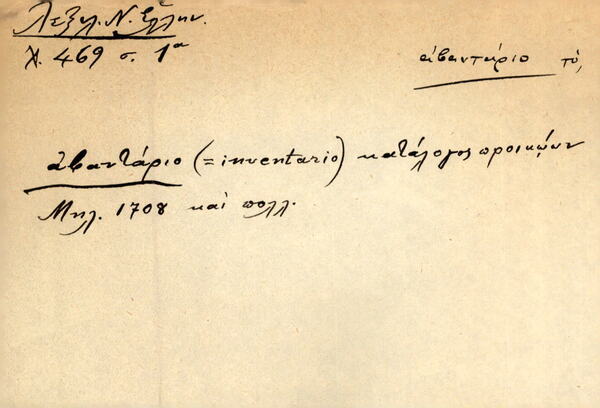 Λεξιλ. Ν. Ἑλλην.
Χ. 469 σ. 1α
ἀβαντάριο τό,
ἀβαντάριο (= inventario) κατάλογος προικῴων
Μηλ. 1708 καὶ πολλ.